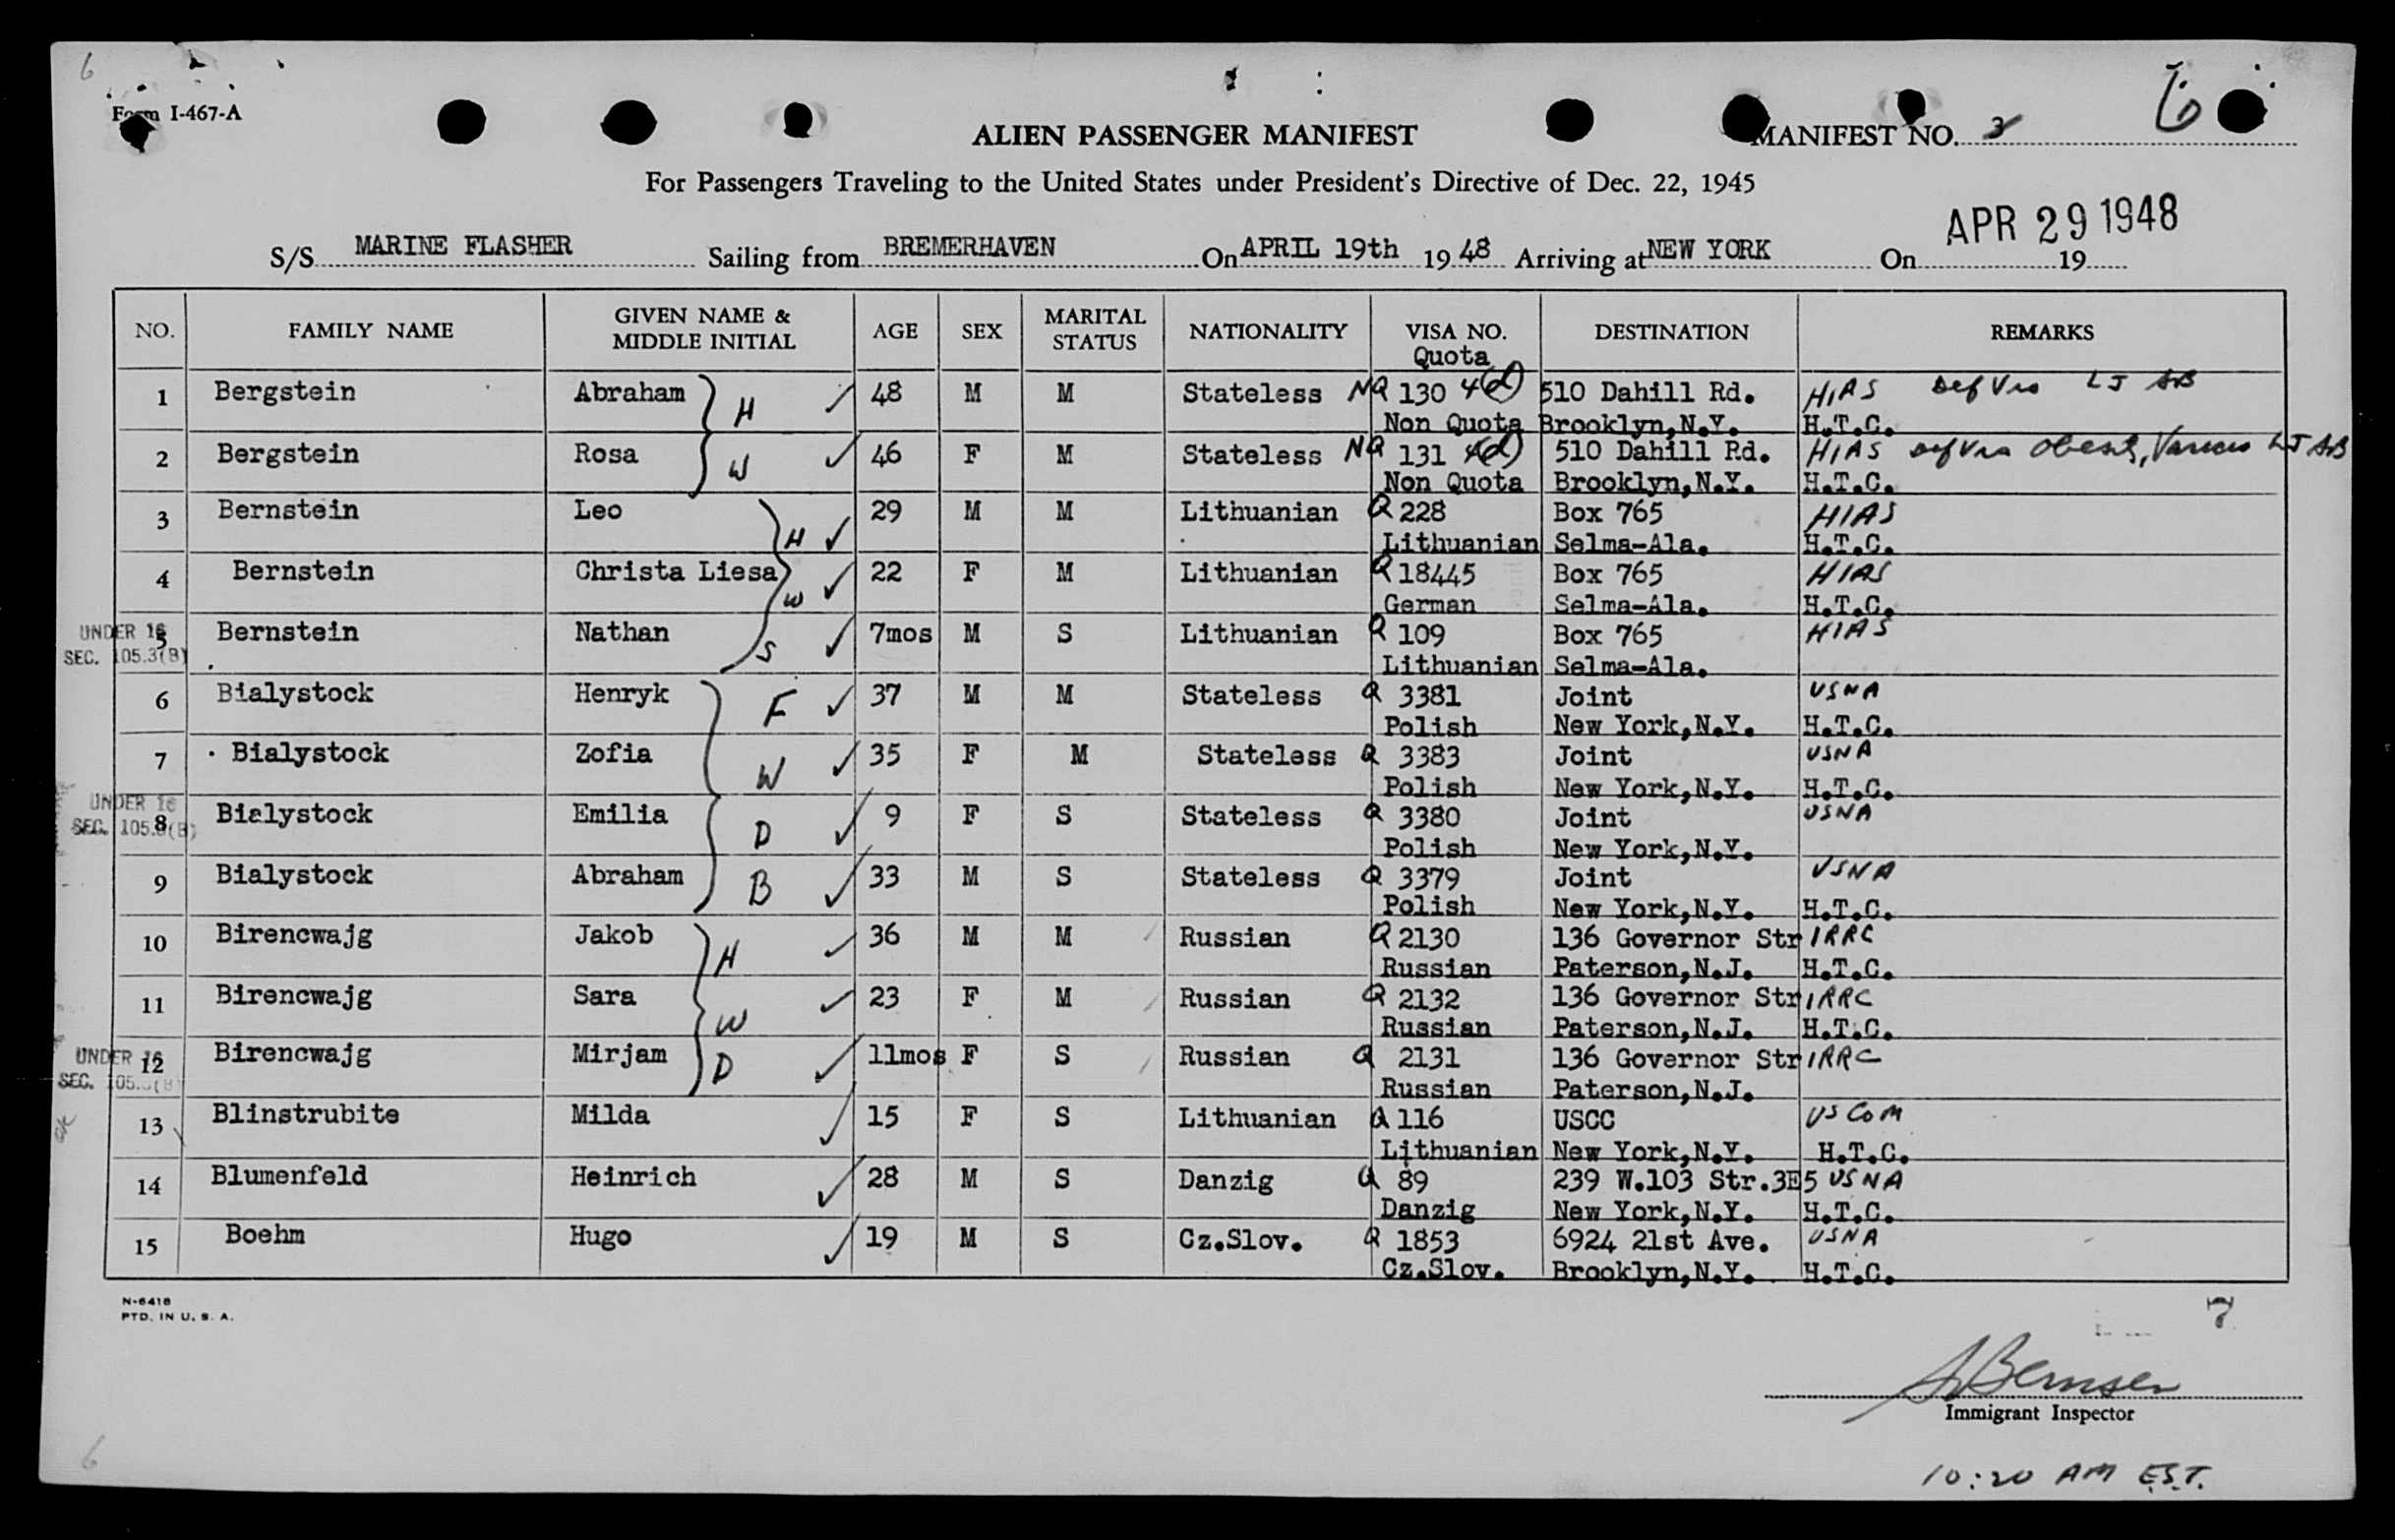 6
Form I-467-A
ALIEN PASSENGER MANIFEST
MANIFEST NO. 3
6
For Passengers Traveling to the United States under President's Directive of Dec. 22, 1945
APR 29 1948
S/S MARINE FLASHER Sailing from BREMERHAVEN On APRIL 19th 19 48 Arriving at NEW YORK On 19
NO. FAMILY NAME GIVEN NAME & MIDDLE INITIAL AGE SEX MARITAL STATUS NATIONALITY VISA NO. Quota DESTINATION REMARKS
1 Bergstein Abraham H ✓ 48 M M Stateless NQ 130 4(d) 510 Dahill Rd. HIAS Def Vis LJ AB
Non Quota Brooklyn,N.Y. H.T.C.
2 Bergstein Rosa W ✓ 46 F M Stateless NQ 131 4(d) 510 Dahill Rd. HIAS def Vis LJ AB
Non Quota Brooklyn,N.Y. H.T.C.
3 Bernstein Leo H ✓ 29 M M Lithuanian Q 228 Box 765 HIAS
Lithuanian Selma-Ala. H.T.C.
4 Bernstein Christa Liesa W ✓ 22 F M Lithuanian Q 18445 Box 765 HIAS
German Selma-Ala. H.T.C.
UNDER 16
SEC. 105.3(B)
5 Bernstein Nathan S ✓ 7mos M S Lithuanian Q 109 Box 765 HIAS
Lithuanian Selma-Ala.
6 Bialystock Henryk F ✓ 37 M M Stateless Q 3381 Joint USNA
Polish New York,N.Y. H.T.C.
7 Bialystock Zofia W ✓ 35 F M Stateless Q 3383 Joint USNA
Polish New York,N.Y. H.T.C.
UNDER 16
SEC. 105.3(B)
8 Bialystock Emilia D ✓ 9 F S Stateless Q 3380 Joint USNA
Polish New York,N.Y.
9 Bialystock Abraham B ✓ 33 M S Stateless Q 3379 Joint USNA
Polish New York,N.Y. H.T.C.
10 Birencwajg Jakob H ✓ 36 M M Russian Q 2130 136 Governor Str IRRC
Russian Paterson,N.J. H.T.C.
11 Birencwajg Sara W ✓ 23 F M Russian Q 2132 136 Governor Str IRRC
Russian Paterson,N.J. H.T.C.
UNDER 16
SEC. 105.3(B)
12 Birencwajg Mirjam D ✓ 11mos F S Russian Q 2131 136 Governor Str IRRC
Russian Paterson,N.J.
13 Blinstrubite Milda ✓ 15 F S Lithuanian Q 116 USCC US COM
Lithuanian New York,N.Y. H.T.C.
14 Blumenfeld Heinrich ✓ 28 M S Danzig Q 89 239 W.103 Str.3E5 USNA
Danzig New York,N.Y. H.T.C.
15 Boehm Hugo ✓ 19 M S Cz.Slov. Q 1853 6924 21st Ave. USNA
Cz.Slov. Brooklyn,N.Y. H.T.C.
N-6418
PTD. IN U. S. A.
7
Immigrant Inspector
6
10:20 AM E.S.T.